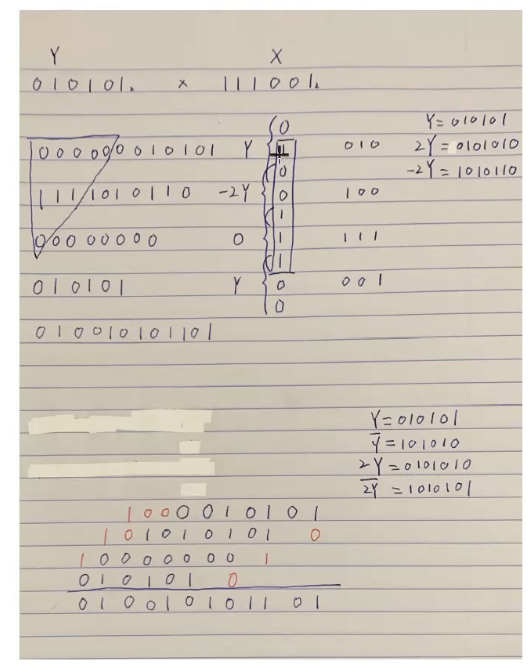 Y X
010101₂ × 111001₂
0
000000010101 Y 1 010 Y=010101
0 2Y=0101010
1111010110 -2Y 0 100 -2Y=1010110
1
00000000 0 1 111
1
010101 Y 0 001
0
010010101101
Y=010101
Y̅=101010
2Y=0101010
2Y̅=1010101
1000010101
101010101 0
100000000 1
010101 0
010010101101